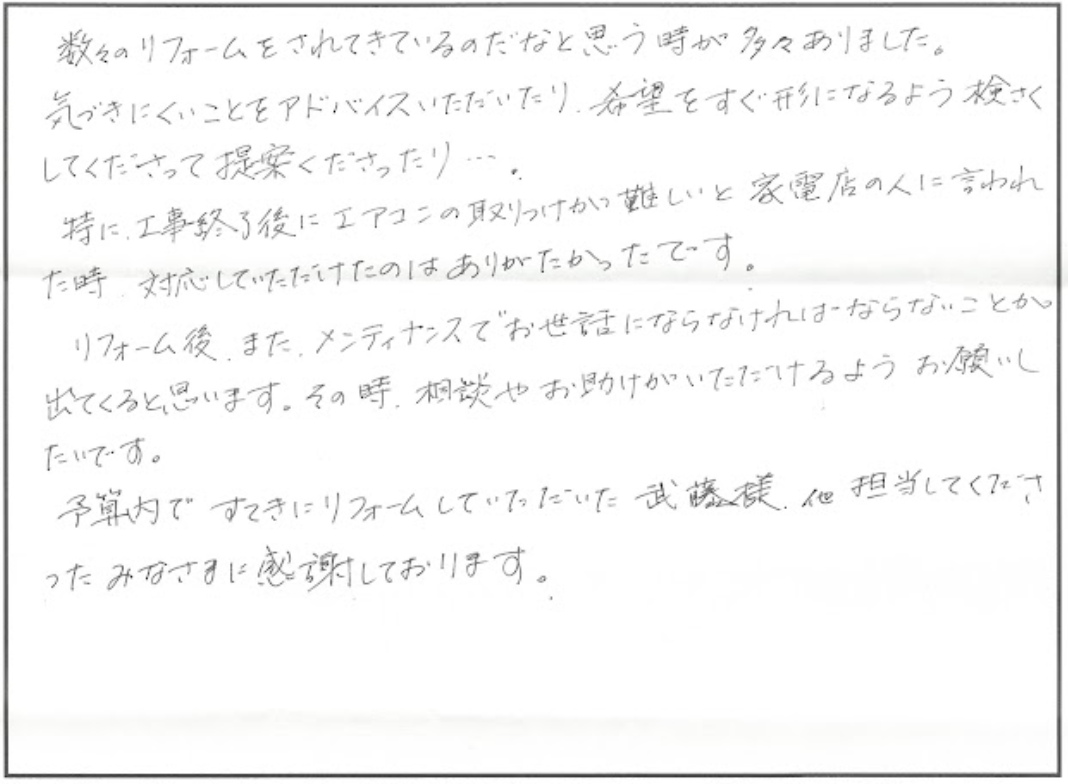 数々のリフォームをされてきているのだなと思う時が多々ありました。
気づきにくいことをアドバイスいただいたり、希望をすぐ形になるよう検さく
してくださって提案くださったり…。
特に、工事終了後にエアコンの取りつけが難しいと家電店の人に言われ
た時、対応していただけたのはありがたかったです。
リフォーム後、また、メンティナンスでお世話にならなければならないことが
出てくると思います。その時、相談やお助けがいただけるようお願いし
たいです。
予算内ですてきにリフォームしていただいた武藤様、他担当してくださ
ったみなさまに感謝しております。